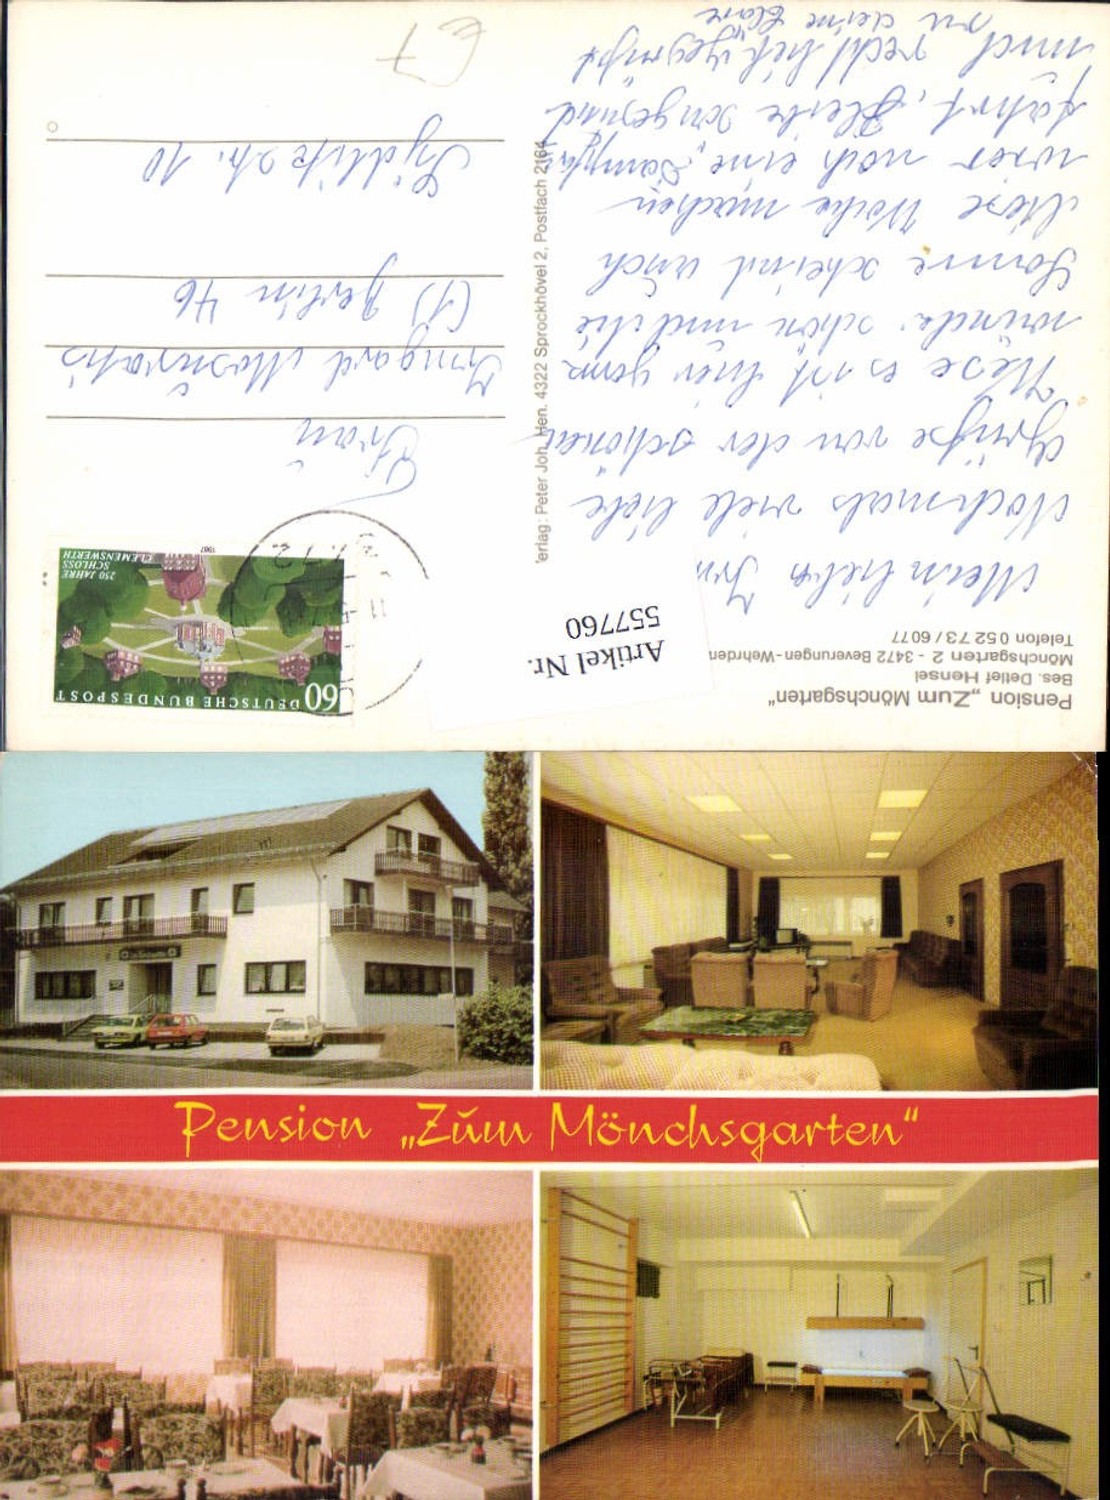 Pension „Zum Mönchsgarten“
Bes. Detlef Hensel
Mönchsgarten 2 - 3472 Beverungen-Wehrden
Telefon 0 52 73 / 6077
Artikel Nr.
557760
Mein liebes
Nochmals viele liebe
Grüße von der schönen
Weser es ist hier ganz
schön und die
Sonne scheint auch
diese Woche machen
wir noch eine „Dampfer
fahrt“, Bleibe gesund
und recht lieb gegrüßt
Verlag: Peter Joh. Hen. 4322 Sprockhövel 2, Postfach 2164
60 DEUTSCHE BUNDESPOST
250 JAHRE
SCHLOSS
CLEMENSWERTH
1987
Frau
Irmgard
(1) Berlin 46
10
Pension „Zum Mönchsgarten“